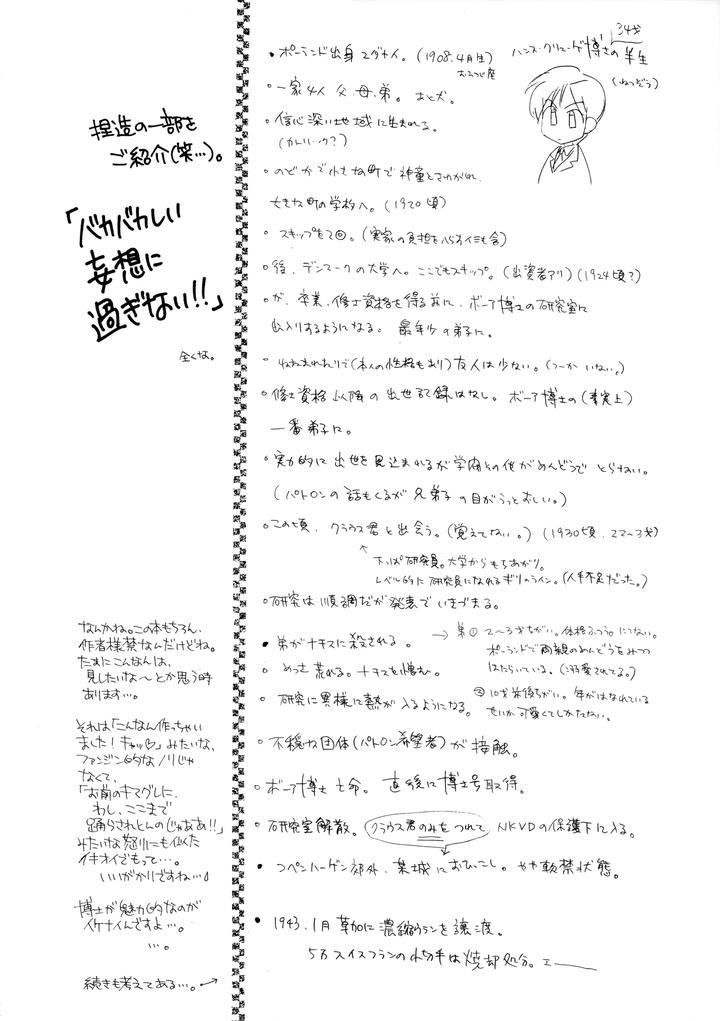 捏造の一部を
ご紹介(笑…)。
「バカバカしい
妄想に
過ぎない!!」
全くな。
なんかね。この本もちろん、
作者様禁なんだけどね。
たまにこんなんは、
見したいな〜とか思う時
あります…。
それは「こんなん作っちゃい
ました!キャッ♡」みたいな、
ファンジン的なノリじゃ
なくて、
「お前のキマグレに、
わし、ここまで
踊らされとんのじゃああ!!」
みたいな怒りにも似た
イキオイでもって…。
いいがかりですね…♪
博士が魅力的なのが
イケナイんですよ…。
…。
続きも考えてある…。→
34才
ハンス・クリューゲ博士の半生
(ねつぞう)
・ポーランド出身 ユダヤ人。(1908.4月生)
おひつじ座
○一家4人 父、母、弟。あと犬。
○信心深い地域に生まれる。
○のどかで小さな町で神童とさわがれ、
大きな町の学校へ。(1920頃)
○スキップもて◎。(実家の負担をへらすイミも含)
○後、デンマークの大学へ。ここでもスキップ。(出資者アリ)(1924頃?)
○が、卒業、修士資格を得る前に、ボーア博士の研究室に
出入りするようになる。最年少の弟子に。
(本人の性格もあり)友人は少ない。(つーか いない。)
○修士資格以降の出世記録はなし。ボーア博士の(事実上)
一番弟子に。
○実力的に出世を見込まれるが学閥その他がめんどうで とらない。
(パトロンの話もくるが兄弟子の目がうっとおしい。)
○この頃、クラウス君と出会う。(覚えてない。)(1930頃、22〜3才)
↑下っぱ研究員。大学からもちあがり。
レベル的に研究員になれるギリのライン。(人手不足だった。)
○研究は順調だが発表でいきづまる。
・弟がナチスに殺される。
→ 弟① 2〜3才ちがい。体格ふつう。にてない。
ポーランドで両親のめんどうをみつつ
はたらいている。(溺愛されてる。)
○めっさ荒れる。ナチスを憎む。
○研究に異様に熱が入るようになる。
② 10才前後ちがい。年がはなれている
せいか可愛くてしかたない。
・不穏な団体(パトロン希望者)が接触。
○ボーア博士亡命。直後に博士号取得。
○研究室解散。クラウス君のみをつれてNKVDの保護下に入る。
・コペンハーゲン郊外、古城におひっこし。やや軟禁状態。
・1943.1月 草加に濃縮ウランを譲渡。
5万スイスフランの小切手は焼却処分。